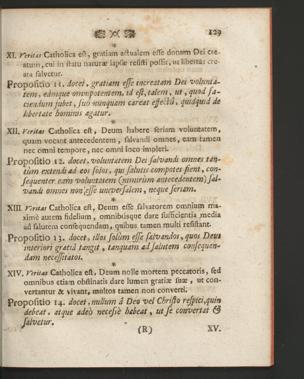 129
XI. Veritas Catholica est, gratiam actualem esse donum Dei cre-
atum, cui in statu naturæ lapsæ resisti possit, ut libertas cre-
ata salvetur.
Propositio 11. docet, gratiam esse increatam Dei volunta-
tem, eamque omnipotentem, id est, talem, ut, quod fa-
ciendum jubet, suo nunquam careat effectu, quidquid de
libertate hominis agatur.
XII. Veritas Catholica est, Deum habere seriam voluntatem,
quam vocant antecedentem, salvandi omnes, eam tamen
nec omni tempore, nec omni loco impleri.
Propositio 12. docet, voluntatem Dei salvandi omnes tan-
tùm extendi ad eos solos, qui salutis compotes fient, con-
sequenter eam voluntatem (nimirum antecedentem) sal-
vandi omnes non esse universalem, neque seriam.
XIII. Veritas Catholica est, Deum esse salvatorem omnium ma-
ximè autem fidelium, omnibusque dare sufficientia media
ad salutem consequendam, quibus tamen multi resistant.
Propositio 13. docet, illos solùm esse salvandos, quos Deus
interiori gratiâ tangit, tanquam ad salutem consequen-
dam necessitatos.
XIV. Veritas Catholica est, Deum nolle mortem peccatoris, sed
omnibus etiam obstinatis dare lumen gratiæ suæ, ut con-
vertantur & vivant, multos tamen non converti.
Propositio 14. docet, nullum à Deo vel Christo respici, quin
debeat, atque adeò necesse habeat, ut se convertat &
salvetur.
(R) XV.